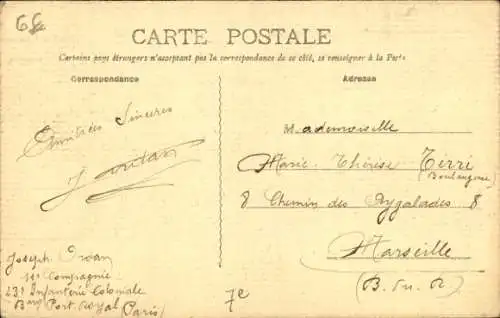 68
CARTE POSTALE
Certains pays étrangers n'acceptent pas la correspondance de ce côté, se renseigner à la Poste
Correspondance
Adresse
Amitiés Sincères
Mademoiselle
Marie Thérèse Tirri
(Boulangerie)
8 Chemin des Aygalades 8
Marseille
(B. du R)
Joseph
11e Compagnie
23e Infanterie Coloniale
Port Royal (Paris)
7e